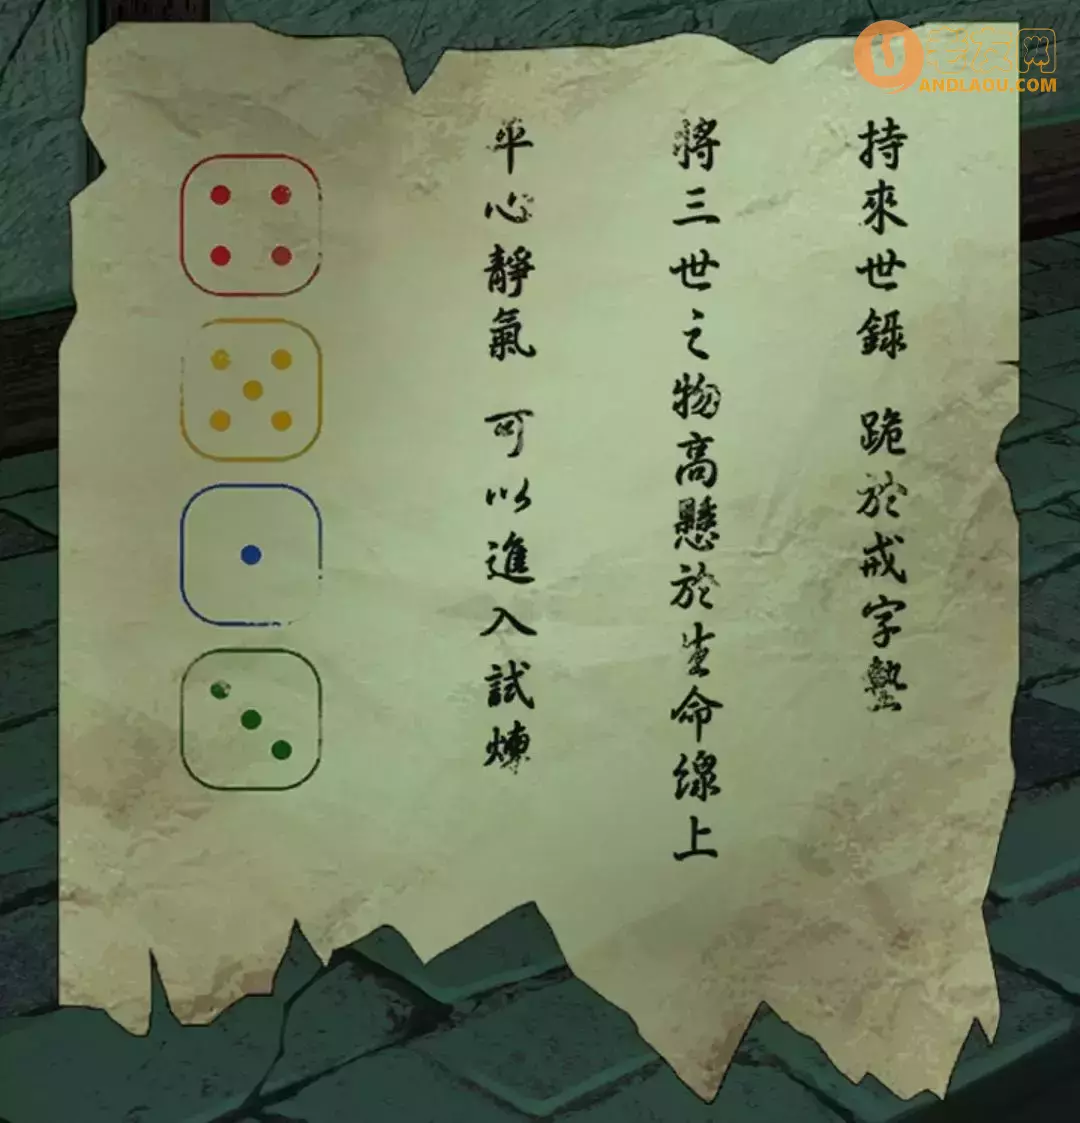 持來世錄 跪於戒字墊
將三世之物高懸於生命線上
平心靜氣 可以進入試煉
ANDLAOU.COM